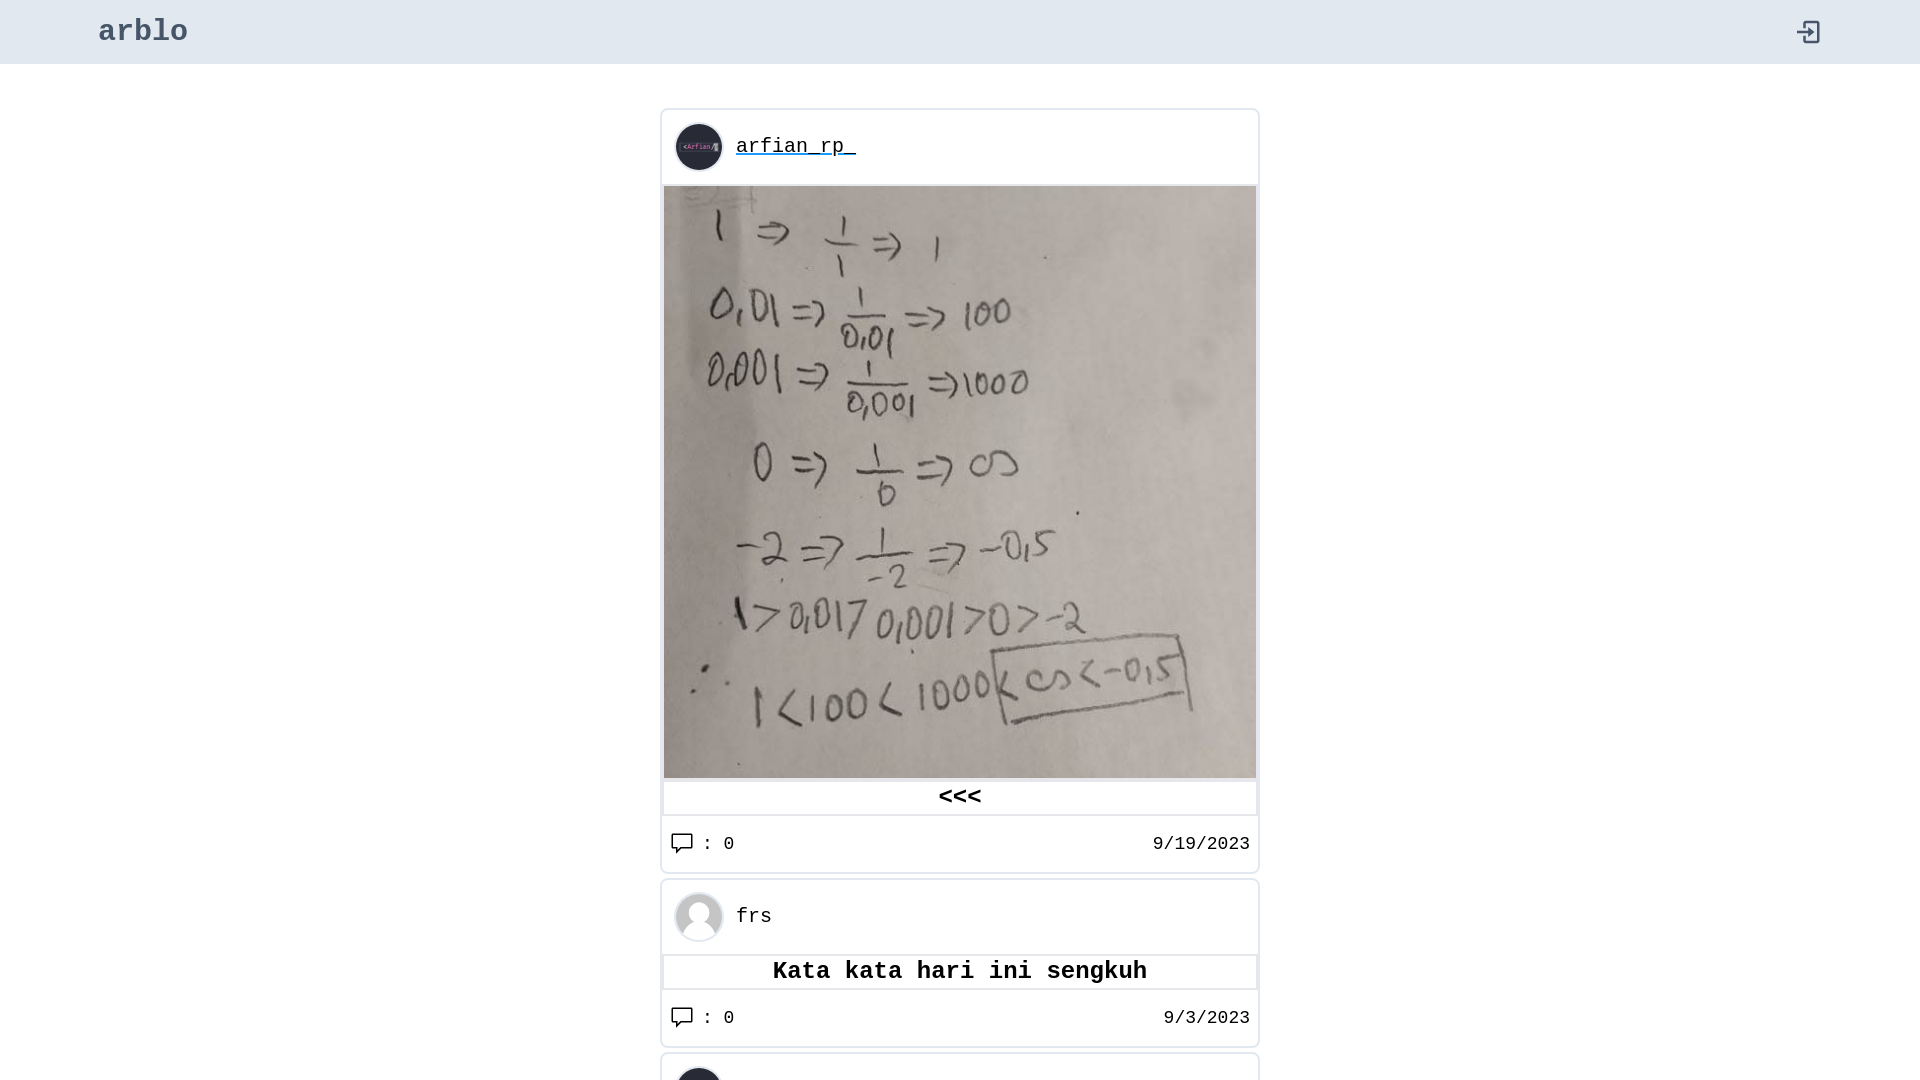 arblo
<Arfian/>
arfian_rp_
1 ⇒ 1/1 ⇒ 1
0,01 ⇒ 1/0,01 ⇒ 100
0,001 ⇒ 1/0,001 ⇒ 1000
0 ⇒ 1/0 ⇒ ∞
-2 ⇒ 1/-2 ⇒ -0,5
1 > 0,01 > 0,001 > 0 > -2
∴ 1 < 100 < 1000 < ∞ < -0,5
<<<
: 0 9/19/2023
frs
Kata kata hari ini sengkuh
: 0 9/3/2023